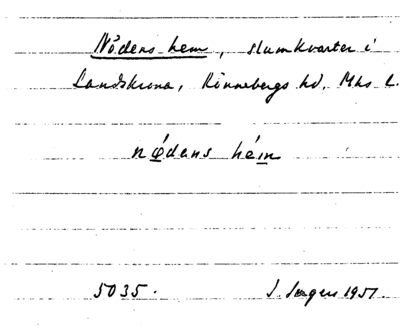 Nödens hem, slumkvarter i
Landskrona, Rönnebergs hd, Mhs l.
nǿdens hém
5035. J. 1951